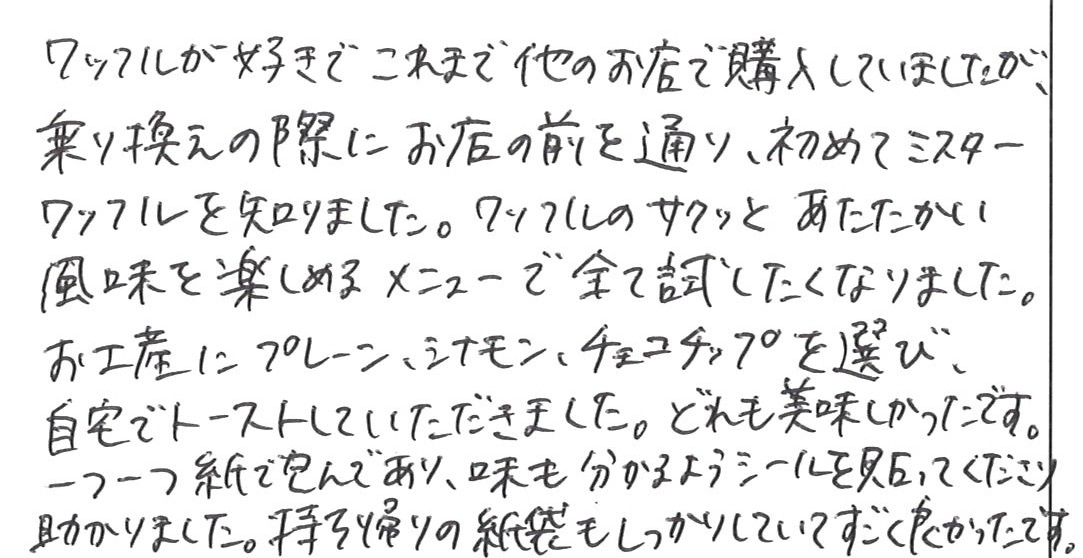 ワッフルが好きでこれまで他のお店で購入していましたが、
乗り換えの際にお店の前を通り、初めてミスター
ワッフルを知りました。ワッフルのサクッとあたたかい
風味を楽しめるメニューで全て試したくなりました。
お土産にプレーン、シナモン、チョコチップを選び、
自宅でトーストしていただきました。どれも美味しかったです。
一つ一つ紙で包んであり、味も分かるようシールを貼ってくださり
助かりました。持ち帰りの紙袋もしっかりしていてすごく良かったです。